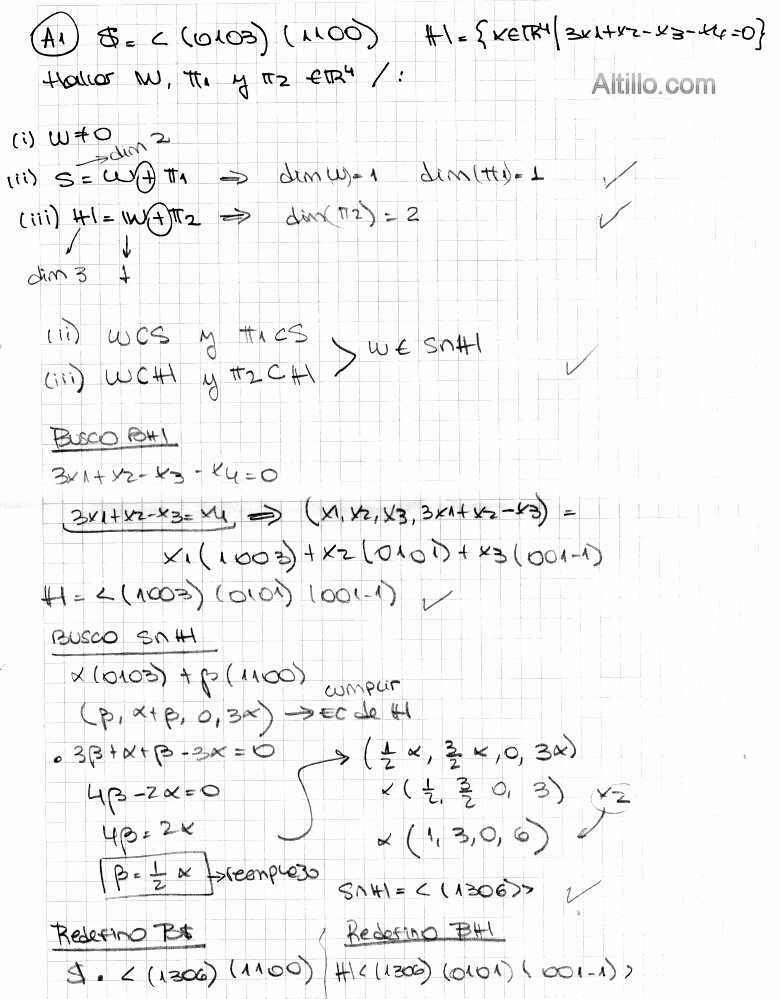 A1 S = < (0103) (1100) H = {x∈ℝ⁴ / 3x1+x2-x3-x4=0}
Hallar W, π1 y π2 ∈ℝ⁴ / :
Altillo.com
(i) W≠0
dim 2
(ii) S = W⊕π1 ⇒ dim(W)=1 dim(π1)=1 ✓
(iii) H = W⊕π2 ⇒ dim(π2)=2 ✓
dim 3 1
(ii) W⊂S y π1⊂S
(iii) W⊂H y π2⊂H > W ∈ S∩H ✓
BUSCO BH
3x1+x2-x3-x4=0
3x1+x2-x3=x4 ⇒ (x1, x2, x3, 3x1+x2-x3) =
x1(1003)+x2(0101)+x3(001-1)
H = < (1003) (0101) (001-1) ✓
BUSCO S∩H
α(0103) + β(1100)
(β, α+β, 0, 3α) → cumplir EC de H
• 3β+α+β-3α=0 → (1/2 α, 3/2 α, 0, 3α)
4β-2α=0 α(1/2, 3/2 0, 3) x2
4β=2α α(1, 3, 0, 6)
β=1/2 α → reemplazo
S∩H = < (1306)> ✓
Redefino BS Redefino BH
S = < (1306) (1100) H < (1306) (0101) (001-1) >